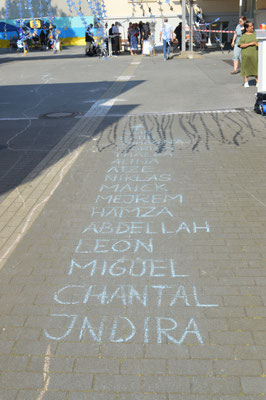 ATZE
NIKLAS
MAICK
MEJREM
HAMZA
ABDELLAH
LEON
MIGUEL
CHANTAL
INDIRA